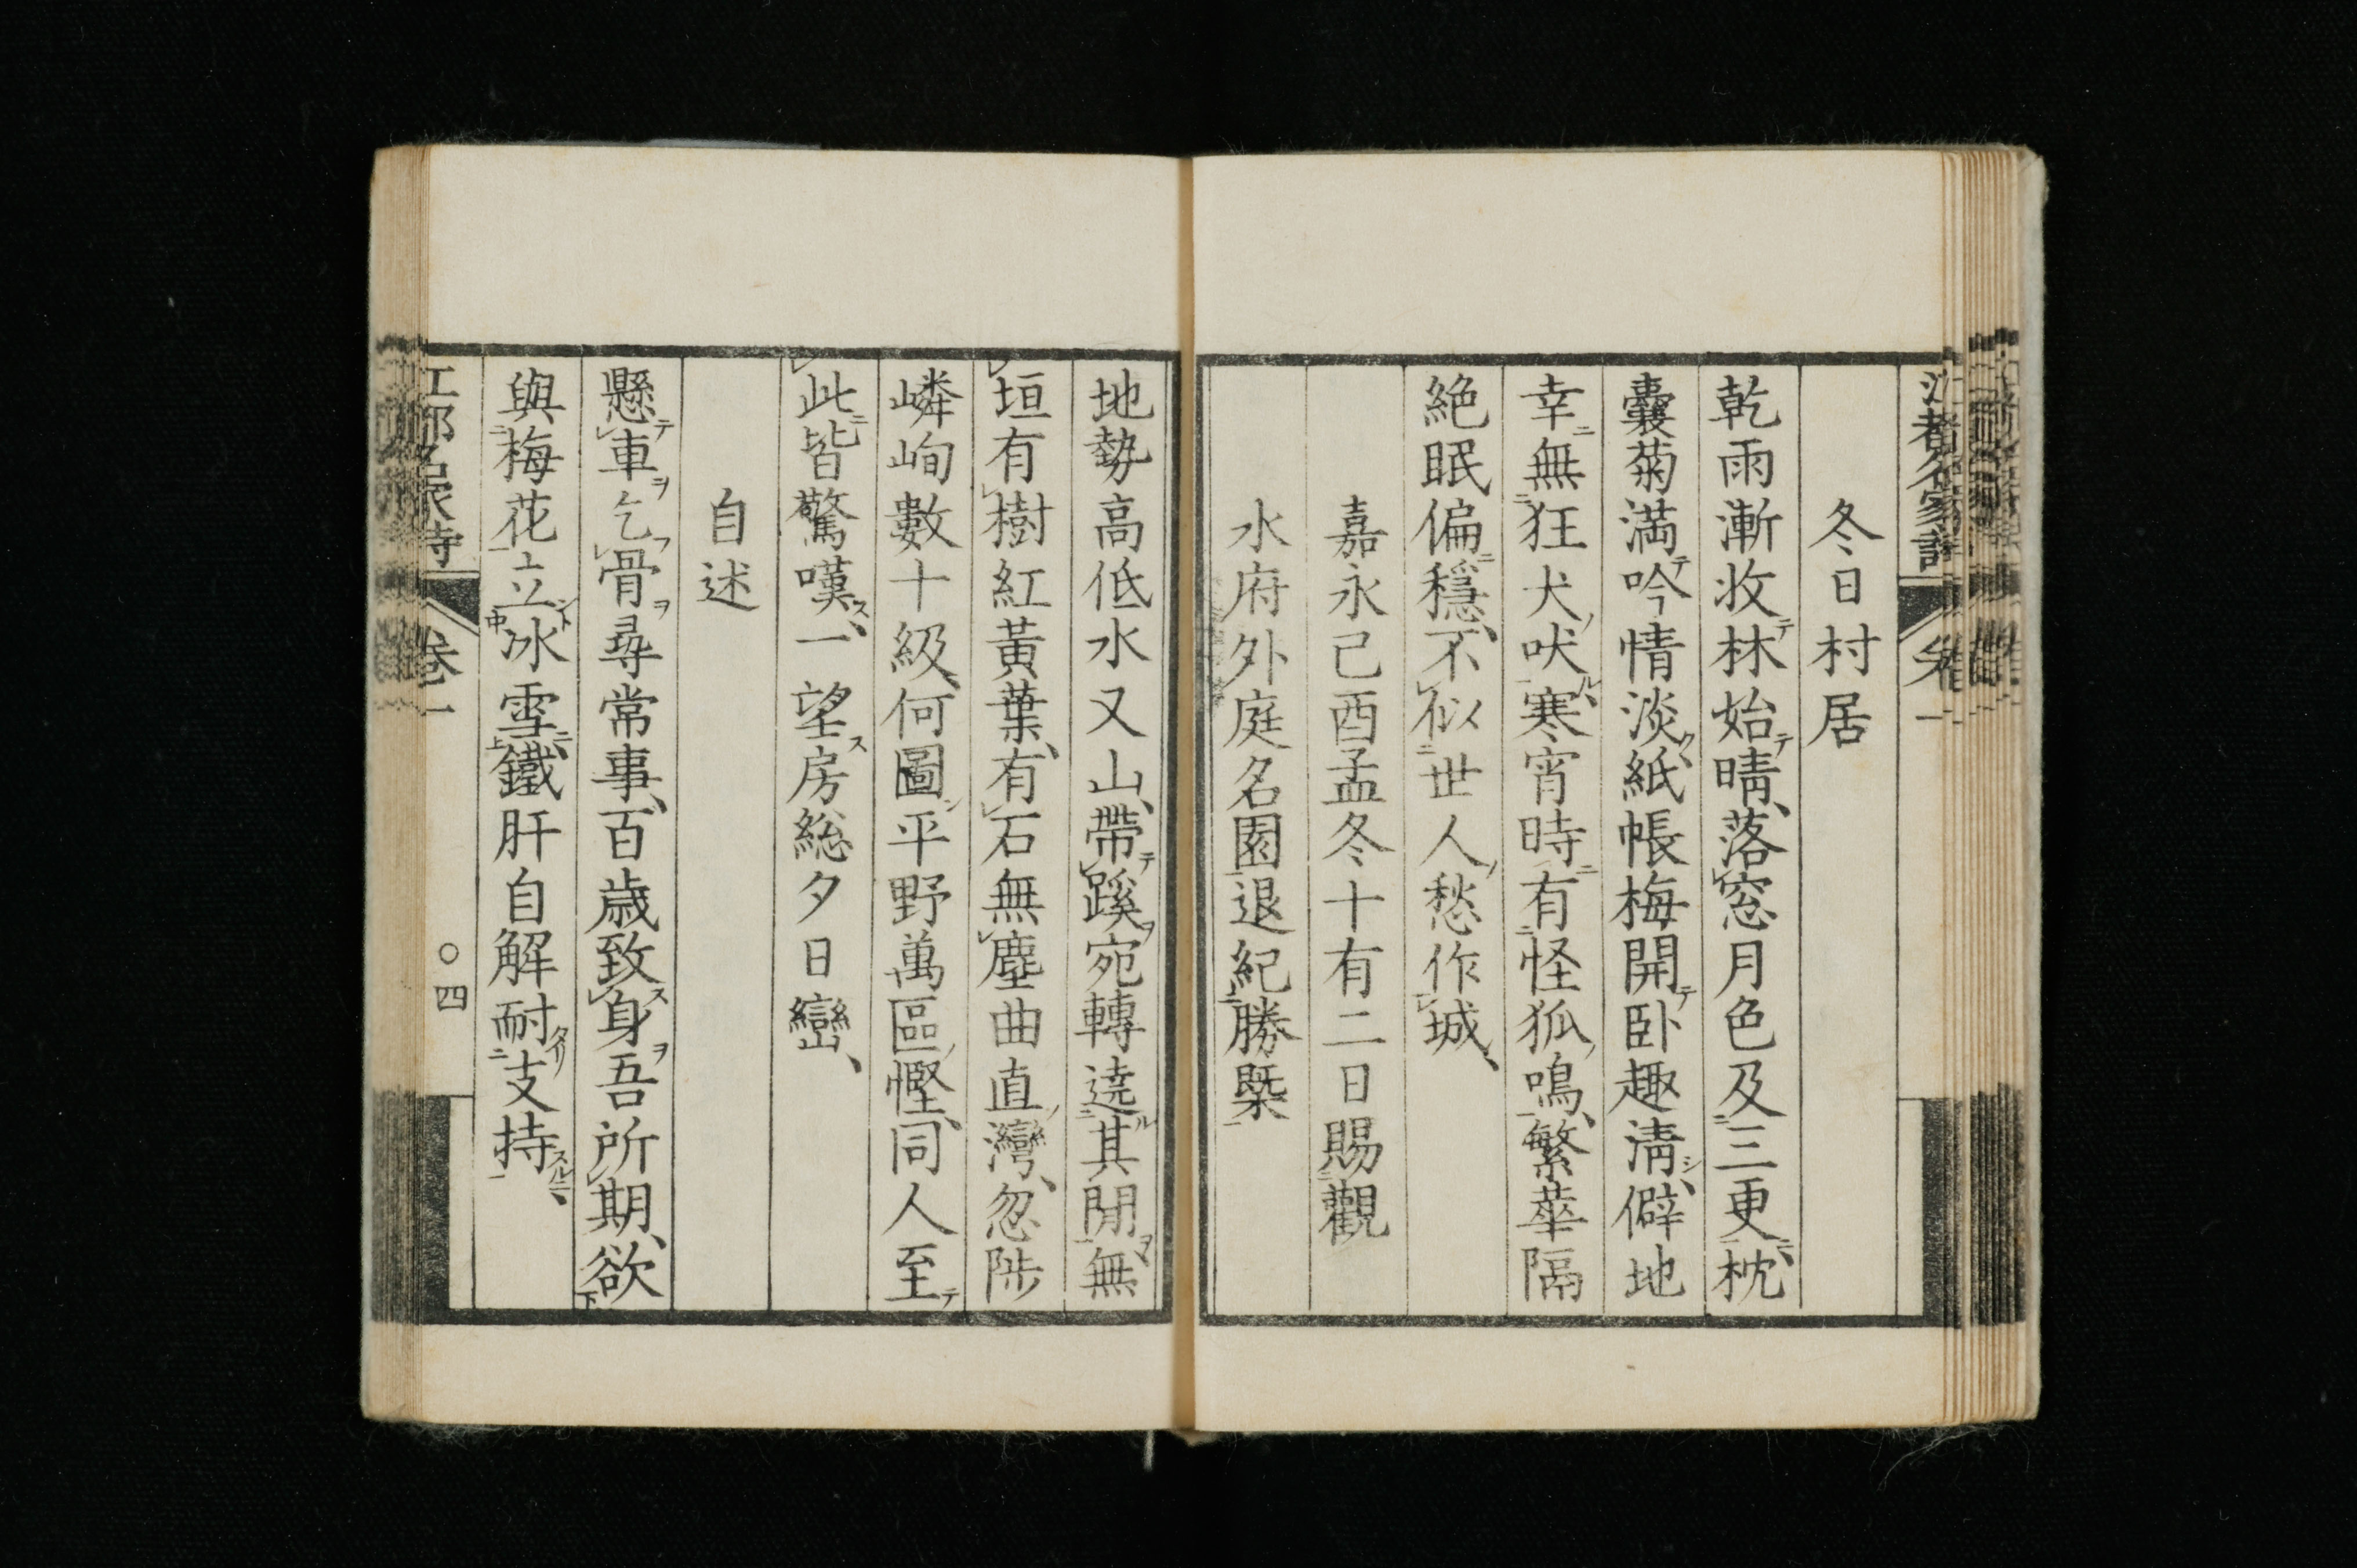 冬日村居
乾雨漸收林始晴、落窓月色及三更、枕
囊菊満吟情淡紙帳梅開臥趣淸、僻地
幸無狂犬吠、寒宵時有怪狐鳴、繁華隔
絶眠偏穩、不似世人愁作城、
嘉永己酉孟冬十有二日賜觀
水府外庭名園退紀勝槩
地勢高低水又山、帶蹊宛轉遶其閒、無
垣有樹紅黃葉、有石無塵曲直灣、忽陟
嶙峋數十級、何圖平野萬區慳、同人至
此皆驚嘆、一望房総夕日巒、
自述
懸車乞骨尋常事、百歳致身吾所期、欲
與梅花立冰雪、鐵肝自解耐支持、
江都名家詩 卷一 〇四